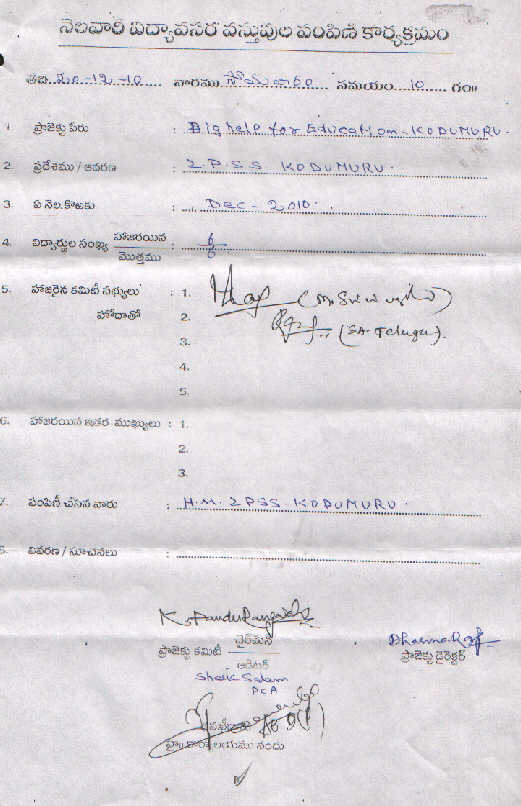 నెలవారీ విద్యావసర వస్తువుల పంపిణీ కార్యక్రమం
తేది 20-12-10 వారము సోమవారం సమయం 10 గం॥
1. ప్రాజెక్టు పేరు : Big help for Education - KODUMURU.
2. ప్రదేశము / ఆవరణ : ZPSS KODUMURU.
3. ఏ నెల కొఱకు : Dec - 2010.
4. విద్యార్థుల సంఖ్య హాజరయిన : 6
మొత్తము 6
5. హాజరైన కమిటీ సభ్యులు : 1.
హోదాతో 2. (SA-Telugu).
3.
4.
5.
6. హాజరయిన ఇతర ముఖ్యులు : 1.
2.
3.
7. పంపిణీ చేసిన వారు : H.M. ZPSS KODUMURU.
8. వివరణ / సూచనలు :
చైర్‌మెన్
ప్రాజెక్టు కమిటీ
ప్రాజెక్టు డైరెక్టర్
ఆడిటర్
Shaik Salam
PCA